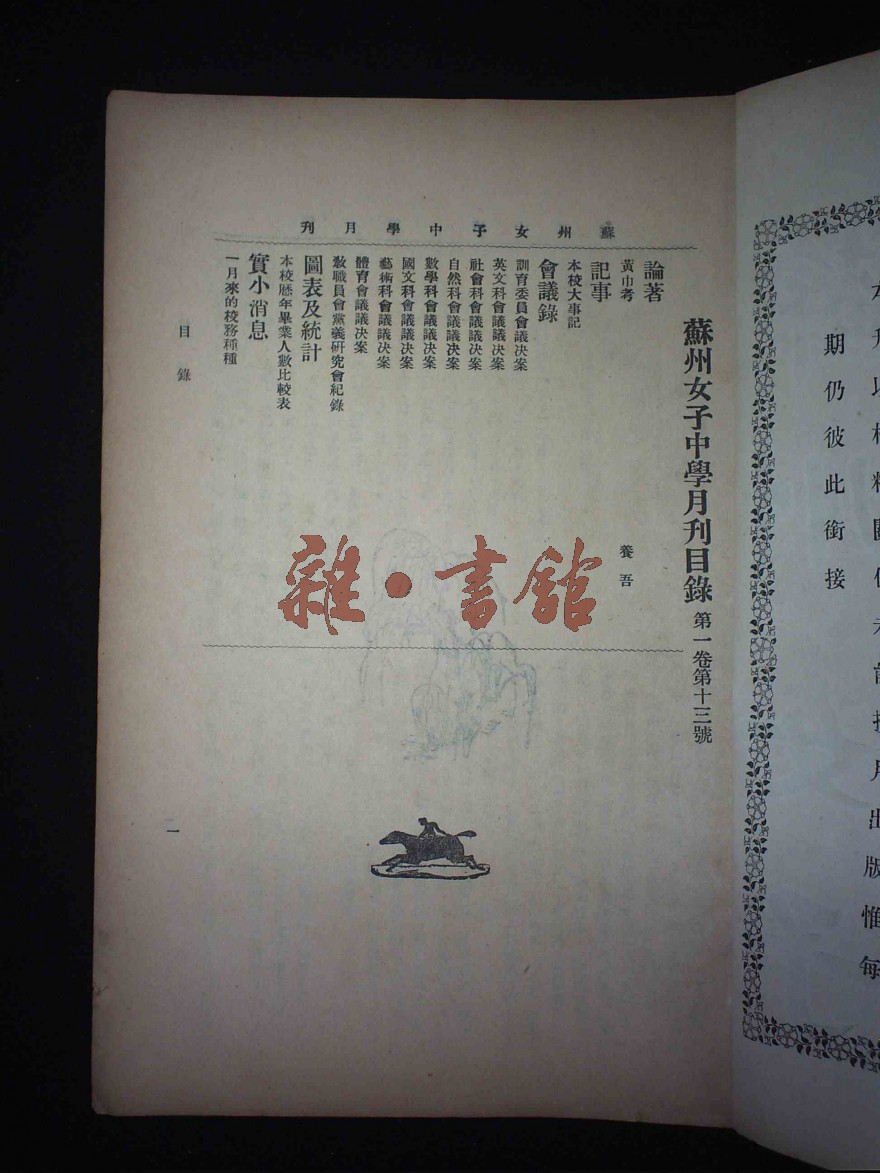 期仍彼此銜接
蘇州女子中學月刊
蘇州女子中學月刊目錄 第一卷第十三號
論著
黃巾考 養吾
記事
本校大事記
會議錄
訓育委員會議决案
英文科會議議决案
社會科會議議决案
自然科會議議决案
數學科會議議决案
國文科會議議决案
藝術科會議議决案
體育會議議决案
敎職員會黨義研究會紀錄
圖表及統計
本校歷年畢業人數比較表
實小消息
一月來的校務種種
目錄
一
雜·書館